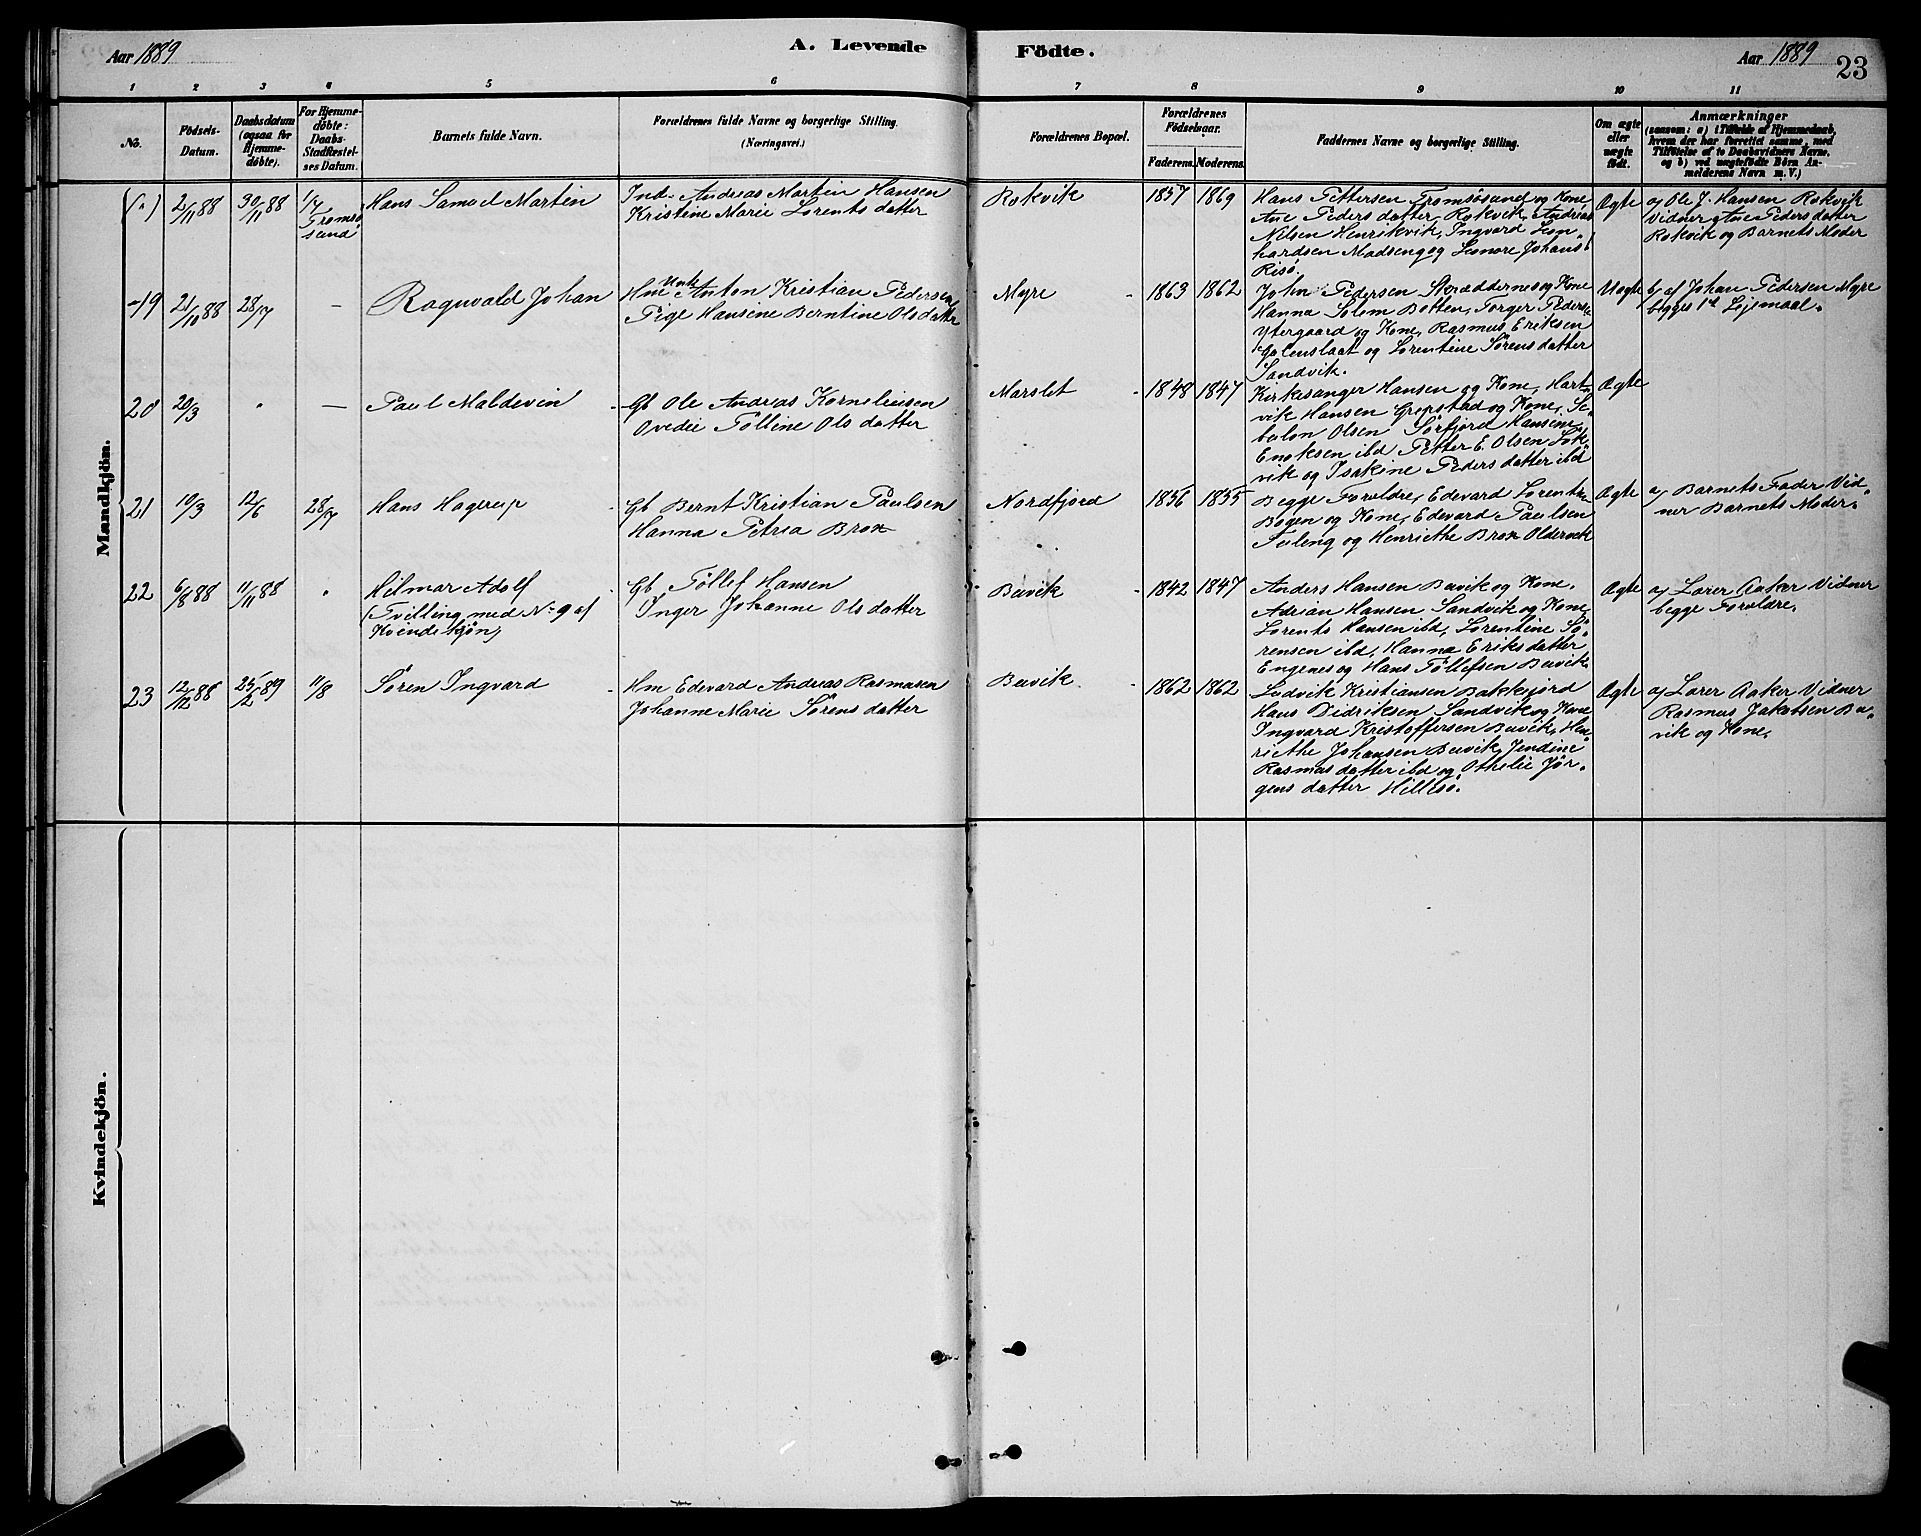 Aar 1889
A. Levende
Födte.
Aar 1889
23
1 2 3 4 5 6 7 8 9 10 11
No.
Födsels-
Datum.
Daabsdatum
(ogsaa for
Hjemme-
döbte).
For Hjemme-
döbte:
Daabs-
Stadfæstel-
ses Datum.
Barnets fulde Navn.
Forældrenes fulde Navne og borgerlige Stilling.
(Næringsvei.)
Forældrenes Bopæl.
Forældrenes
Födselsaar.
Faderens. Moderens.
Faddernes Navne og borgerlige Stilling.
Om ægte
eller
uægte
födt.
Anmærkninger
(saasom: a) i Tilfælde af Hjemmedaab,
hvem der har forrettet samme, med
Tilföielse af to Daabsvidners Navne,
og b) ved uægtefödte Börn An-
melderens Navn m. V.)
Mandkjön.
2/11 88
30/11 88
1/7
Tromsö
sund
Hans Samuel Martin
Ind. Andreas Martin Hansen
Kristine Marie Lorents datter
Rokvik
1857 1869
Hans Pettersen Tromsösund og Kone
Ane Peders datter, Rokvik, Andreas
Nilsen Henrikvik, Ingvard Leon-
hardsen Madseng og Leonore Johans
Risö.
Ægte
a) Ole J. Hansen Rokvik
Vidner Ane Peders datter
Rokvik og Barnets Moder
19
21/10 88
28/7
—
Ragnvald Johan
Unk
Hm Anton Kristian Pedersen
Pige Hansine Berntine Ols datter
Myre
1863 1862
John Pedersen Skræddernes og Kone
Hanna Solem Botten, Torger Peders
Ytergaard og Kone, Rasmus Eriksen
og Lorentine Sörens datter
Sandvik.
Uægte
b) af Johan Pedersen Myre
begges 1ste Lejemaal.
20
20/3
"
—
Paul Maldevin
Gb Ole Andreas Korneliusen
Ovedie Tölline Ols datter
Marslet
1848 1847
Kirkesanger Hansen og Kone, Hart-
vik Hansen Grepstad og Kone, Se-
bulon Olsen Sörfjord Hansine
Enoksen ibd Petter E. Olsen Lok-
vik og Isakine Peders datter ibd
Ægte
21
10/3
12/6
28/7
Hans Hagerup
Gb Bernt Kristian Paulsen
Hanna Petria Brox
Nordfjord
1856 1855
Begge Forældre, Edevard Lorents
Bogen og Kone, Edevard Paulsen
og Henriethe Brox Oldervik
Ægte
a) Barnets Fader Vid-
ner Barnets Moder.
22
6/8 88
11/11 88
"
Hilmar Adolf
(Tvilling med No 9 af
Kvindekjön)
Gb Töllef Hansen
Inger Johanne Ols datter
Bævik
1842 1847
Anders Hansen Bævik og Kone,
Adrian Hansen Sandvik og Kone,
Lorents Hansen ibd, Lorentine Sö-
rensen ibd, Hanna Eriks datter
Engenes og Hans Töllefsen Bævik.
Ægte
a) Lærer Aaker Vidner
begge Forældre.
23
12/12 88
25/2 89
11/8
Sören Ingvard
Hm Edevard Andreas Rasmusen
Johanne Marie Sörens datter
Bævik
1862 1862
Ludvik Kristiansen Bakkejord
Hans Didriksen Sandvik og Kone
Ingvard Kristoffersen Bævik, Hen-
riethe Johansen Bævik, Jendine
Rasmus datter ibd og Othelie Jör-
gens datter Hillesö.
Ægte
a) Lærer Aaker Vidner
Rasmus Jakobsen Bæ-
vik og Kone.
Kvindekjön.